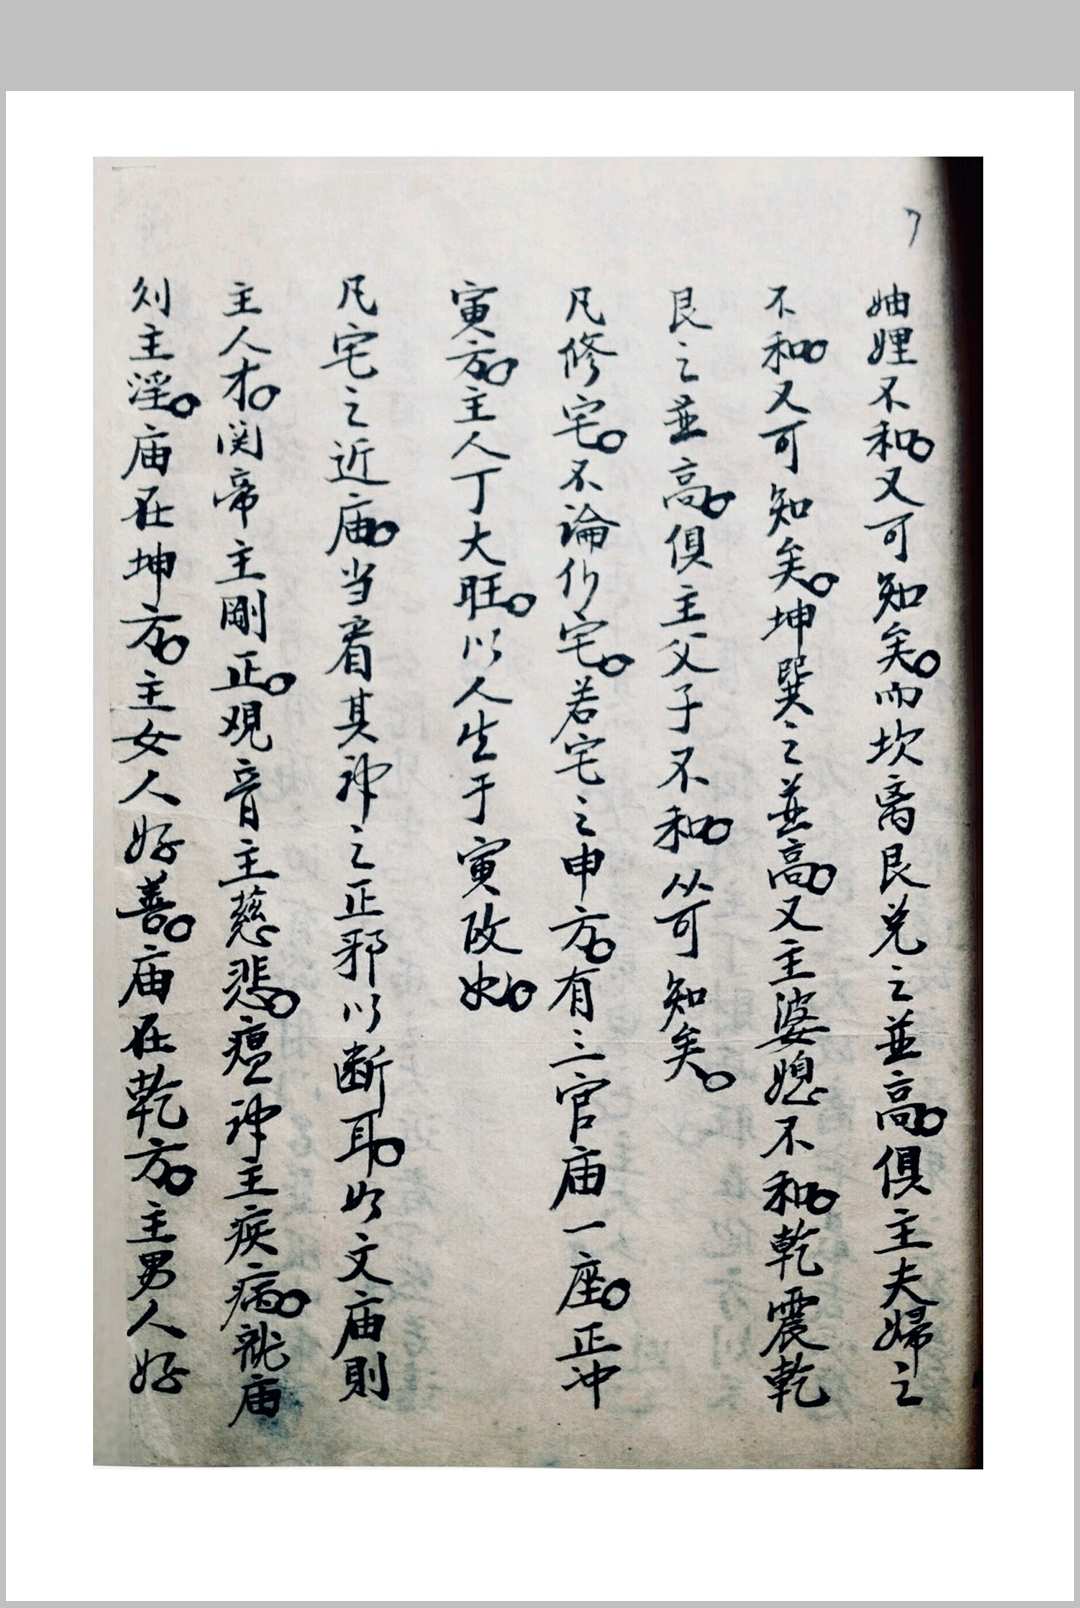 7
妯娌不和。又可知矣。而坎离艮兑之並高。俱主夫婦之
不和。又可知矣。坤巽之並高。又主婆媳不和。乾震乾
艮之並高。俱主父子不和。从可知矣。
凡修宅。不論什宅。若宅之申方。有三官庙一座。正冲
寅方。主人丁大旺。以人生于寅故也。
凡宅之近庙。当看其神之正邪以断耳。如文庙則
主人才。関帝主剛正。观音主慈悲。瘟神主疾病。龍庙
则主淫。庙在坤方。主女人好善。庙在乾方。主男人好